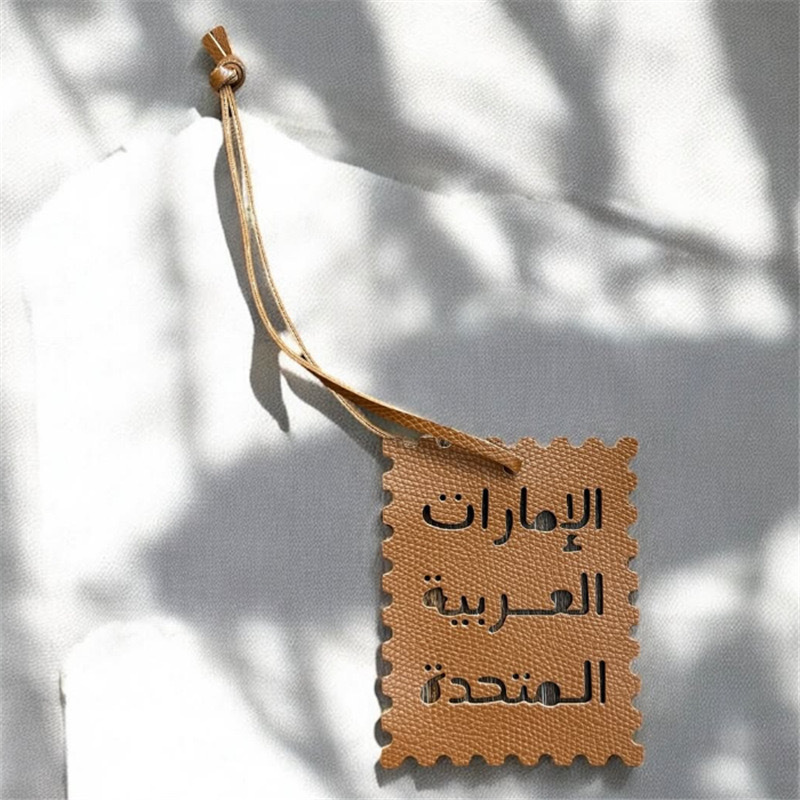 الإمارات
العـربية
المتحدة